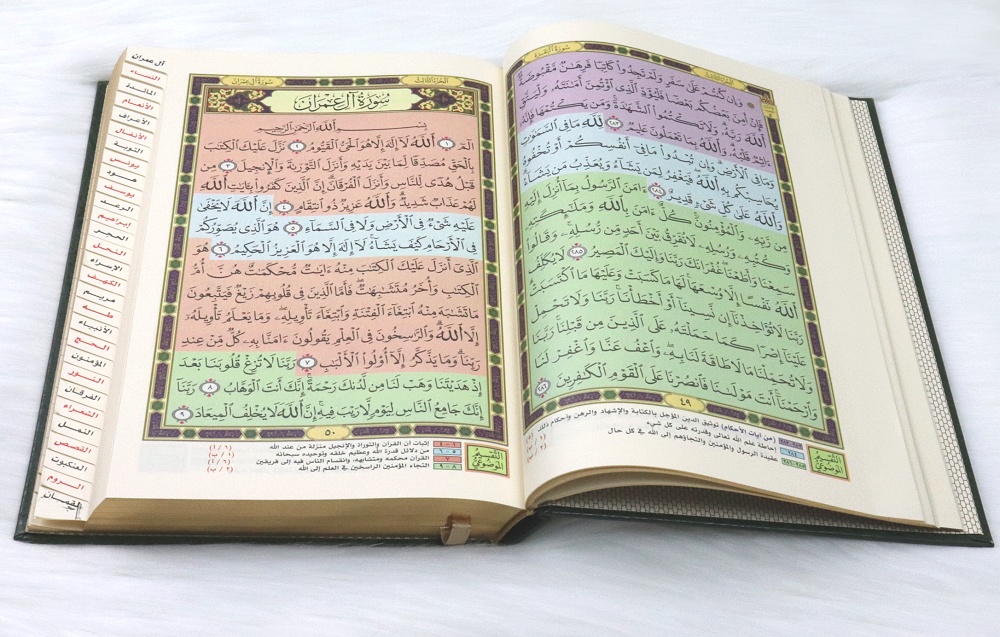 سورة البقرة
الجزء الثالث
۞ وَإِن كُنتُمْ عَلَىٰ سَفَرٍ وَلَمْ تَجِدُوا۟ كَاتِبًا فَرِهَٰنٌ مَّقْبُوضَةٌ
فَإِنْ أَمِنَ بَعْضُكُم بَعْضًا فَلْيُؤَدِّ ٱلَّذِى ٱؤْتُمِنَ أَمَٰنَتَهُۥ وَلْيَتَّقِ
ٱللَّهَ رَبَّهُۥ وَلَا تَكْتُمُوا۟ ٱلشَّهَٰدَةَ وَمَن يَكْتُمْهَا فَإِنَّهُۥٓ
ءَاثِمٌ قَلْبُهُۥ وَٱللَّهُ بِمَا تَعْمَلُونَ عَلِيمٌ ٢٨٣ لِّلَّهِ مَا فِى ٱلسَّمَٰوَٰتِ
وَمَا فِى ٱلْأَرْضِ وَإِن تُبْدُوا۟ مَا فِىٓ أَنفُسِكُمْ أَوْ تُخْفُوهُ
يُحَاسِبْكُم بِهِ ٱللَّهُ فَيَغْفِرُ لِمَن يَشَآءُ وَيُعَذِّبُ مَن يَشَآءُ
وَٱللَّهُ عَلَىٰ كُلِّ شَىْءٍ قَدِيرٌ ٢٨٤ ءَامَنَ ٱلرَّسُولُ بِمَآ أُنزِلَ إِلَيْهِ
مِن رَّبِّهِۦ وَٱلْمُؤْمِنُونَ كُلٌّ ءَامَنَ بِٱللَّهِ وَمَلَٰٓئِكَتِهِۦ
وَكُتُبِهِۦ وَرُسُلِهِۦ لَا نُفَرِّقُ بَيْنَ أَحَدٍ مِّن رُّسُلِهِۦ وَقَالُوا۟
سَمِعْنَا وَأَطَعْنَا غُفْرَانَكَ رَبَّنَا وَإِلَيْكَ ٱلْمَصِيرُ ٢٨٥ لَا يُكَلِّفُ
ٱللَّهُ نَفْسًا إِلَّا وُسْعَهَا لَهَا مَا كَسَبَتْ وَعَلَيْهَا مَا ٱكْتَسَبَتْ
رَبَّنَا لَا تُؤَاخِذْنَآ إِن نَّسِينَآ أَوْ أَخْطَأْنَا رَبَّنَا وَلَا تَحْمِلْ
عَلَيْنَآ إِصْرًا كَمَا حَمَلْتَهُۥ عَلَى ٱلَّذِينَ مِن قَبْلِنَا رَبَّنَا
وَلَا تُحَمِّلْنَا مَا لَا طَاقَةَ لَنَا بِهِۦ وَٱعْفُ عَنَّا وَٱغْفِرْ لَنَا
وَٱرْحَمْنَآ أَنتَ مَوْلَىٰنَا فَٱنصُرْنَا عَلَى ٱلْقَوْمِ ٱلْكَٰفِرِينَ ٢٨٦
٤٩
التقسيم الموضوعي
(من آيات الأحكام) توثيق الدين المؤجل بالكتابة والإشهاد والرهن وأحكام ذلك
٢٨٤ إحاطة علم الله تعالى وقدرته على كل شيء
٢٨٥-٢٨٦ عقيدة الرسول والمؤمنين والتجاؤهم إلى الله في كل حال
الجزء الثالث
سورة آل عمران
سُورَةُ آلِ عِمْرَانَ
بِسْمِ ٱللَّهِ ٱلرَّحْمَٰنِ ٱلرَّحِيمِ
الٓمٓ ١ ٱللَّهُ لَآ إِلَٰهَ إِلَّا هُوَ ٱلْحَىُّ ٱلْقَيُّومُ ٢ نَزَّلَ عَلَيْكَ ٱلْكِتَٰبَ
بِٱلْحَقِّ مُصَدِّقًا لِّمَا بَيْنَ يَدَيْهِ وَأَنزَلَ ٱلتَّوْرَىٰةَ وَٱلْإِنجِيلَ ٣ مِن
قَبْلُ هُدًى لِّلنَّاسِ وَأَنزَلَ ٱلْفُرْقَانَ إِنَّ ٱلَّذِينَ كَفَرُوا۟ بِـَٔايَٰتِ ٱللَّهِ
لَهُمْ عَذَابٌ شَدِيدٌ وَٱللَّهُ عَزِيزٌ ذُو ٱنتِقَامٍ ٤ إِنَّ ٱللَّهَ لَا يَخْفَىٰ
عَلَيْهِ شَىْءٌ فِى ٱلْأَرْضِ وَلَا فِى ٱلسَّمَآءِ ٥ هُوَ ٱلَّذِى يُصَوِّرُكُمْ
فِى ٱلْأَرْحَامِ كَيْفَ يَشَآءُ لَآ إِلَٰهَ إِلَّا هُوَ ٱلْعَزِيزُ ٱلْحَكِيمُ ٦ هُوَ
ٱلَّذِىٓ أَنزَلَ عَلَيْكَ ٱلْكِتَٰبَ مِنْهُ ءَايَٰتٌ مُّحْكَمَٰتٌ هُنَّ أُمُّ
ٱلْكِتَٰبِ وَأُخَرُ مُتَشَٰبِهَٰتٌ فَأَمَّا ٱلَّذِينَ فِى قُلُوبِهِمْ زَيْغٌ فَيَتَّبِعُونَ
مَا تَشَٰبَهَ مِنْهُ ٱبْتِغَآءَ ٱلْفِتْنَةِ وَٱبْتِغَآءَ تَأْوِيلِهِۦ وَمَا يَعْلَمُ تَأْوِيلَهُۥٓ
إِلَّا ٱللَّهُ وَٱلرَّٰسِخُونَ فِى ٱلْعِلْمِ يَقُولُونَ ءَامَنَّا بِهِۦ كُلٌّ مِّنْ عِندِ
رَبِّنَا وَمَا يَذَّكَّرُ إِلَّآ أُو۟لُوا۟ ٱلْأَلْبَٰبِ ٧ رَبَّنَا لَا تُزِغْ قُلُوبَنَا بَعْدَ
إِذْ هَدَيْتَنَا وَهَبْ لَنَا مِن لَّدُنكَ رَحْمَةً إِنَّكَ أَنتَ ٱلْوَهَّابُ ٨ رَبَّنَآ
إِنَّكَ جَامِعُ ٱلنَّاسِ لِيَوْمٍ لَّا رَيْبَ فِيهِ إِنَّ ٱللَّهَ لَا يُخْلِفُ ٱلْمِيعَادَ ٩
٥٠
التقسيم الموضوعي
١ - ٤ إثبات أن القرآن والتوراة والإنجيل منزلة من عند الله
٥ - ٦ من دلائل قدرة الله وعظيم خلقه وتوحيده سبحانه
القرآن محكمه ومتشابهه، وانقسام الناس فيه إلى فريقين
٨ - ٩ التجاء المؤمنين الراسخين في العلم إلى الله
آل عمران
النساء
المائدة
الأنعام
الأعراف
الأنفال
التوبة
يونس
هود
يوسف
الرعد
إبراهيم
الحجر
النحل
الإسراء
الكهف
مريم
طه
الأنبياء
الحج
المؤمنون
النور
الفرقان
الشعراء
النمل
القصص
العنكبوت
الروم
لقمان